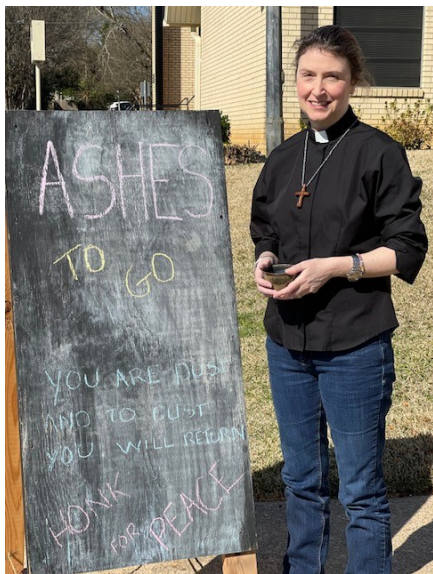 ASHES
TO GO
YOU ARE DUST
AND TO DUST
YOU WILL RETURN
HONK
FOR PEACE